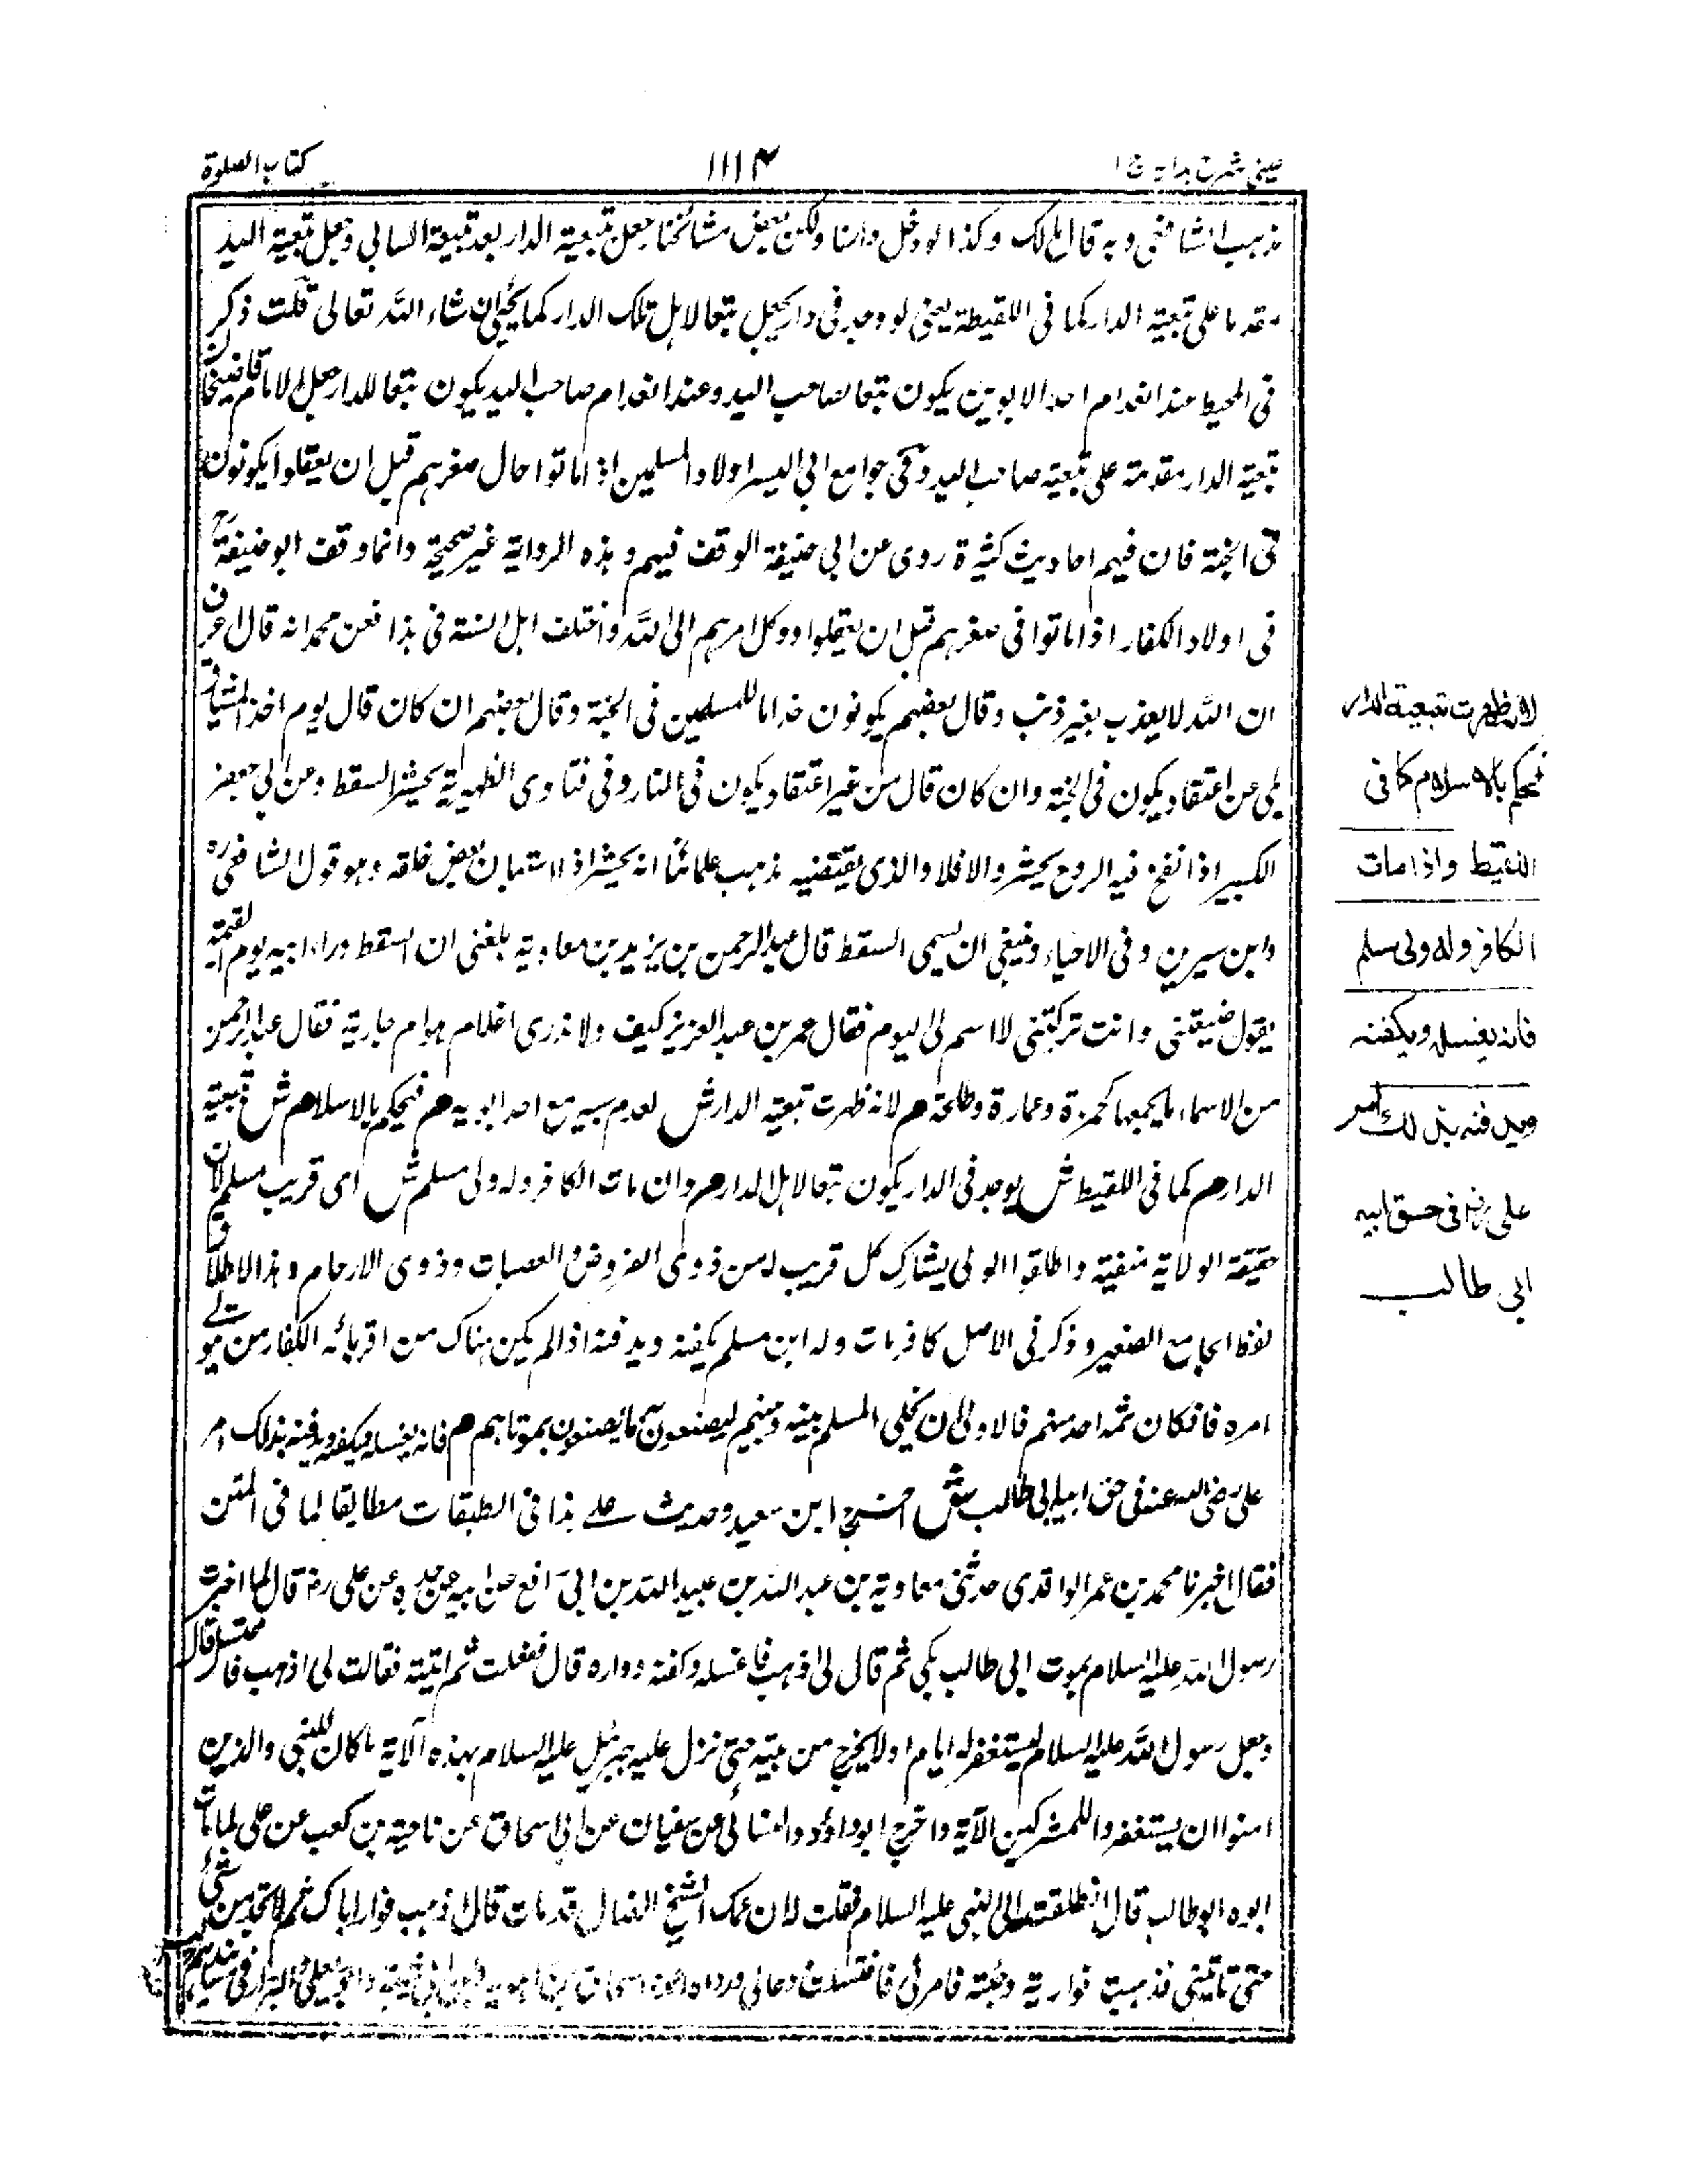 عینی شرح ہدایہ ج ۱
۱۱۱۴
کتاب الصلوة
مذہب الشافعی وبہ قال مالک وکذا لو دخل دارنا ولکن بعض مشائخنا جعل تبعیۃ الدار بعد تبعیۃ السابی وجعل تبعیۃ الید
مقدما علی تبعیۃ الدار کما فی اللقیطۃ یعنی لو وجد فی دار یجعل تبعا لاہل تلک الدار کما یجئ ان شاء اللہ تعالی قلت ذکر
فی المحیط عند انعدام احد الابوین یکون تبعا لصاحب الید وعند انعدام صاحب الید یکون تبعا للدار جعل الامام قاضیخان
تبعیۃ الدار مقدمۃ علی تبعیۃ صاحب الید وفی جوامع ابی الیسر اولاد المسلمین اذا ماتوا حال صغرہم قبل ان یعقلوا یکونون
فی الجنۃ فان فیہم احادیث کثیرۃ روی عن ابی حنیفۃ الوقف فیہم وہذہ الروایۃ غیر صحیحۃ وانما وقف ابو حنیفۃ
فی اولاد الکفار اذا ماتوا فی صغرہم قبل ان یعقلوا ووکل امرہم الی اللہ واختلف اہل السنۃ فی ہذا فعن محمد انہ قال اعرف
ان اللہ لا یعذب بغیر ذنب وقال بعضہم یکونون خداما للمسلمین فی الجنۃ وقال بعضہم ان کان قال یوم اخذ المیثاق
بلی عن اعتقاد یکون فی الجنۃ وان کان قال من غیر اعتقاد یکون فی النار وفی فتاوی الظہیریۃ یحشر السقط وعن ابی جعفر
الکبیر اذا نفخ فیہ الروح یحشر والا فلا والذی یقتضیہ مذہب علمائنا انہ یحشر اذ لاستبان بعض خلقہ وہو قول الشافعی رہ
وابن سیرین وفی الاحیاء وینبغی ان یسمی السقط قال عبد الرحمن بن یزید بن معاویۃ بلغنی ان السقط وراء ابیہ یوم القیمۃ
یقول ضیعتنی وانت ترکتنی لا اسم لی الیوم فقال عمر بن عبد العزیز کیف ولا ندری اغلام ہو ام جاریۃ فقال عبد الرحمن
من الاسماء ما یجمعہا کحمزۃ وعمارۃ وطلحۃ ھم لانہ ظہرت تبعیۃ الدار ش لعدم سبیہ مع احد ابویہ ھم فیحکم بالاسلام ش تبعیۃ
الدار ھم کما فی اللقیط ش یوجد فی الدار یکون تبعا لاہل الدار ھم وان مات الکافر ولہ ولی مسلم ش ای قریب مسلم لان
حقیقۃ الولایۃ منفیۃ واطلقوا الولی یشارک کل قریب لہ من ذوی الفروض والعصبات وذوی الارحام وہذا الاطلاق
لفظ الجامع الصغیر وذکر فی الاصل کافر مات ولہ ابن مسلم یکفنہ ویدفنہ اذا لم یکن ہناک من اقربائہ الکفار من یولے
امرہ فانکان ثمہ احد منہم فالاولی ان یخلی المسلم بینہ وبینہم لیصنعون بہ ما یصنعون بموتاہم ھم فانہ یغسلہ ویکفنہ ویدفنہ بذلک امر
علی رضی اللہ عنہ فی حق ابیہ ابی طالب ش اخرج ابن سعید وحدیث علے ہذا فی الطبقات مطابقا لما فی المتن
فقال اخبرنا محمد بن عمر الواقدی حدثنی معاویۃ بن عبد اللہ بن عبید اللہ بن ابی رافع عن ابیہ عن جدہ عن علی رض قال لما اخبرت
رسول اللہ علیہ السلام بموت ابی طالب بکی ثم قال لی اذہب فاغسلہ وکفنہ ووارہ قال ففعلت ثم اتیتہ فقالت لی اذہب فاغتسل قال
وجعل رسول اللہ علیہ السلام یستغفر لہ ایام اولا یخرج من بیتہ حتی نزل علیہ جبرئیل علیہ السلام بہذہ الآیۃ ما کان للنبی والذین
امنوا ان یستغفروا للمشرکین الآیۃ واخرج ابو داؤد والنسائی عن سفیان عن ابی اسحاق عن ناجیۃ بن کعب عن علی لما مات
ابوہ ابو طالب قال انطلقت الی النبی علیہ السلام فقلت لہ ان عمک الشیخ الضال قد مات قال اذہب فوار اباک ثم لا تحدثن شئ
حتی تاتینی فذہبت فواریتہ وجئتہ فامرنی فاغتسلت ودعا لی
لانہ ظھرت تبعیۃ الدار
فیحکم بالاسلام کما فی
اللقیط واذا مات
الکافر ولہ ولی مسلم
فانہ یغسلہ ویکفنہ
ویدفنہ بذلک امر
علی رض فی حق ابیہ
ابی طالب